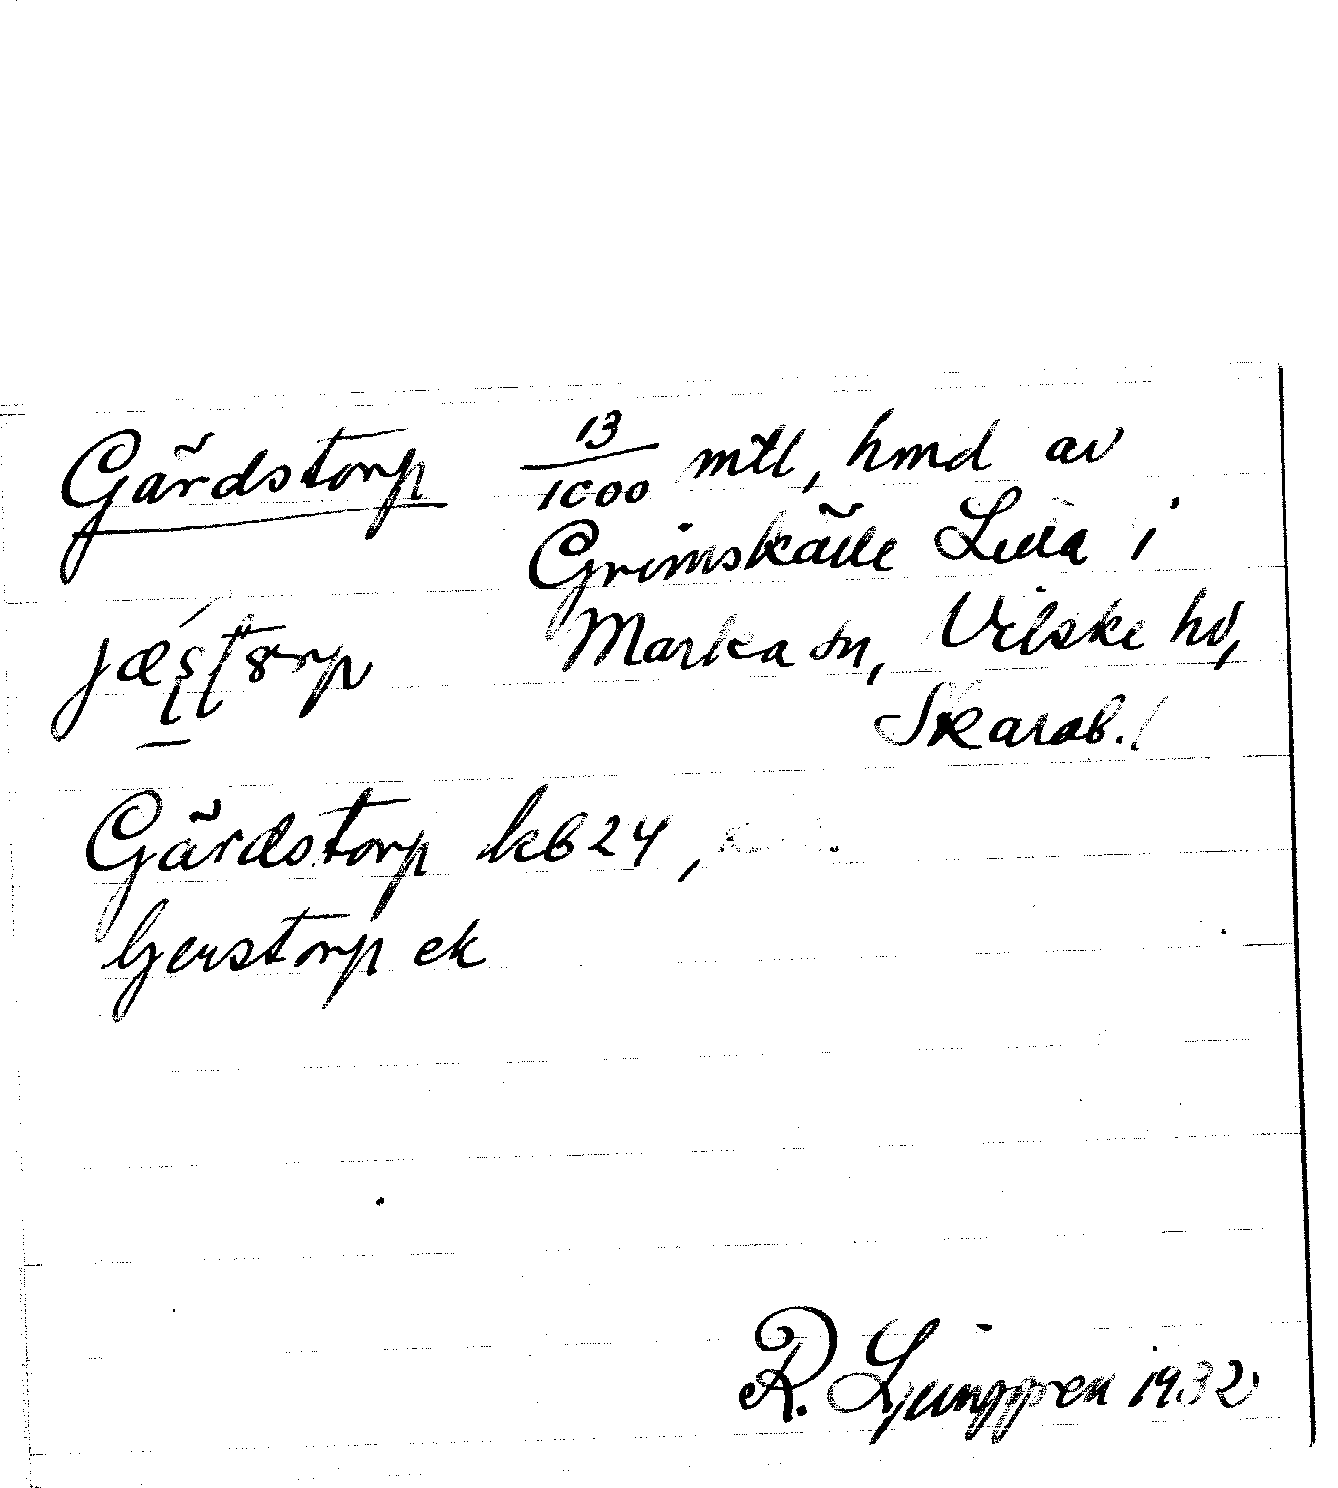 Gärdstorp 13/1000 mtl, hmd av
Grimskälle Lilla i
Marka sn, Vilske hd,
Skarab. l
Gärdstorp kb 24,
Gerstorp ek
R. Ljunggren 1932